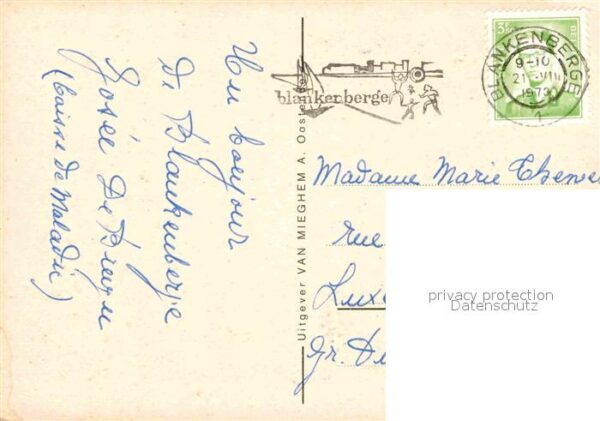 Un bonjour
De Blankenberge
Josée De Bruyn
(Caisse de Maladie)
Uitgever VAN MIEGHEM A. Ooste
blankenberge
BLANKENBERGE
9-10
21-VIII
1973
1
3F50
Madame Marie
rue
Luxe
Gr. Du
privacy protection
Datenschutz